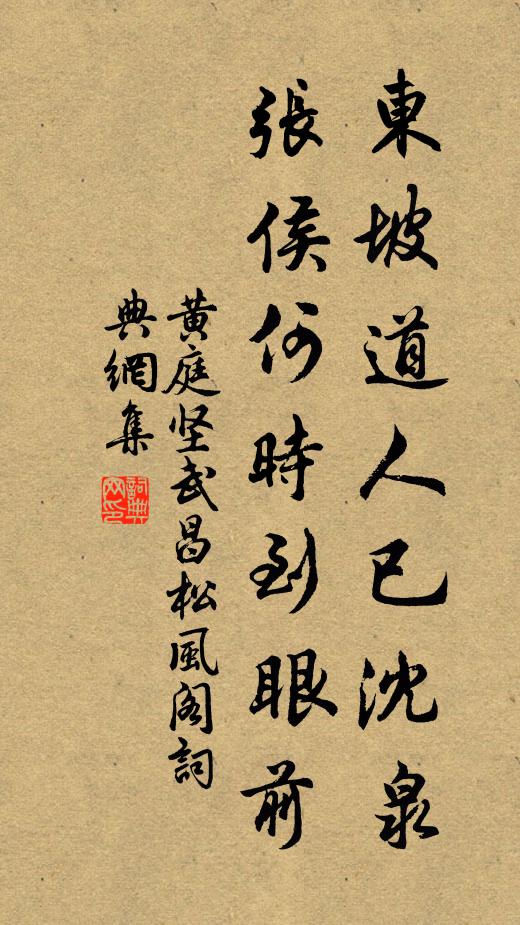 東坡道人已沈泉
張侯何時到眼前
黃庭坚武昌松風阁詞
典網集
詞典
网印